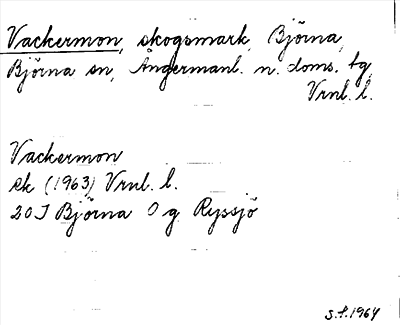 Vackermon, skogsmark, Björna,
Björna sn, Ångermanl. n. doms. tg,
Vrnl. l.
Vackermon
ek (1963) Vrnl. l.
20 J Björna O g Ryssjö
S.f. 1964